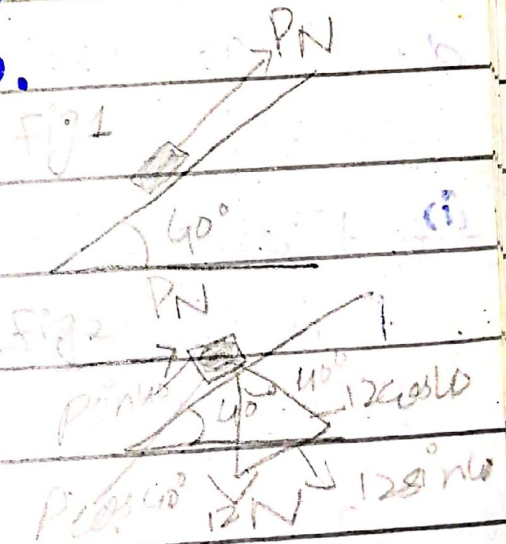 PN
Fig 1
40°
(i)
PN
Fig 2
40°
40°
12cos40
Pcos40°
12N
12sin40